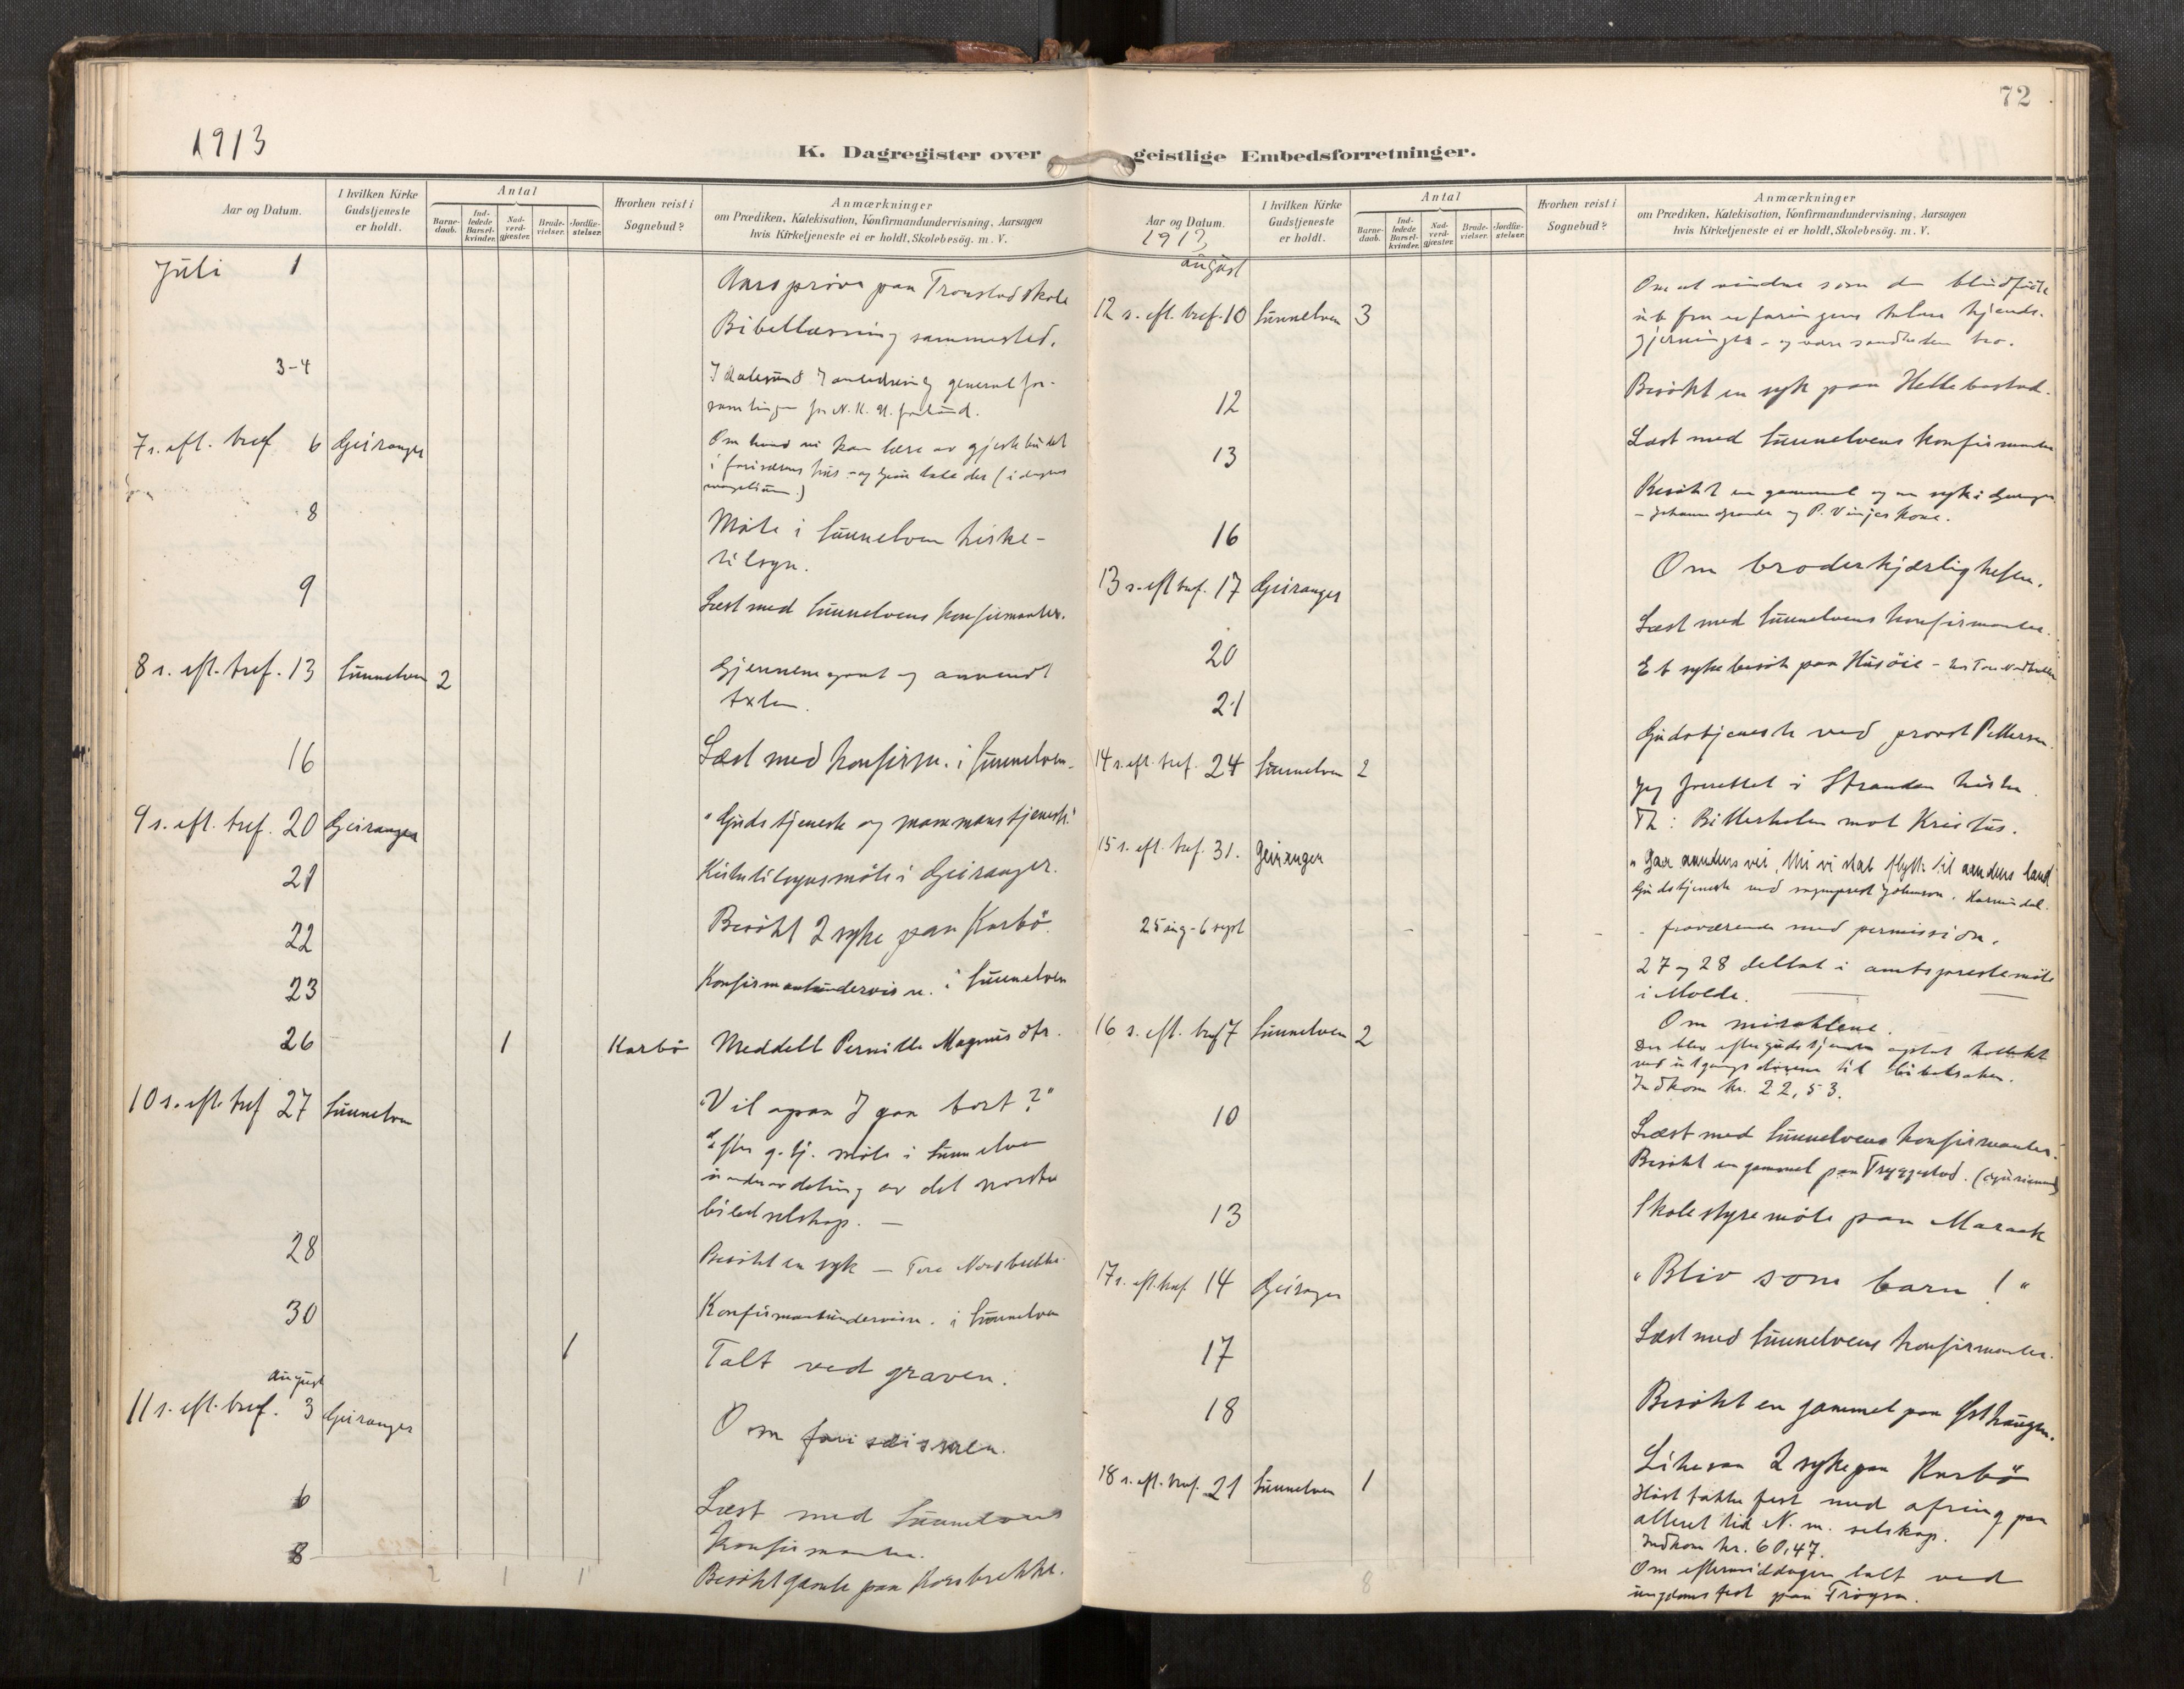 1913
K. Dagregister over
Aar og Datum.
I hvilken Kirke Gudstjeneste er holdt.
Antal
Barne-daab.
Ind-ledede Barsel-kvinder.
Nad-verd-gjæster.
Brude-vielser.
Jordfæ-stelser.
Hvorhen reist i Sognebud?
Anmærkninger
om Prædiken, Katekisation, Konfirmandundervisning, Aarsagen
hvis Kirketjeneste ei er holdt, Skolebesøg. m. V.
Juli 1
Aarsprøve paa Tronstad skole
Bibellæsning sammested.
3-4
I Aalesund I anledning generalfor-
samlingen for N. K. U. forbund.
7 s. eft. tref. 6 Geiranger
Om hvad vi kan lære av gjestebudet
i fariseerens hus
8
Møte i Sunnelven kirke-
tilsyn.
9
Læst med Sunnelvens konfirmanter.
8 s. eft. tref. 13 Sunnelven 2
Gjennemgaat og anvendt
texten.
16
Læst med konfirm. i Sunnelven.
9 s. eft. tref. 20 Geiranger
"Gudstjeneste og mammonstjeneste"
21
Kirketilsynsmøte i Geiranger.
22
Besøkt 2 syke paa Korsbø.
23
Konfirmantundervisn. i Sunnelven
26 1 Korsbø Meddelt Pernille Magnusdtr.
10 s. eft. tref 27 Sunnelven
"Vil ogsaa I gaa bort?"
Efter g.tj. møte i Sunnelven
underavdeling av det norske
bibelselskap. —
28
Besøkt en syk — Tore Nordbukti
30
Konfirmantundervisn. i Sunnelven
1
Talt ved graven.
august
11 s. eft. tref. 3 Geiranger
Om fariseismen.
6
Læst med Sunnelvens
konfirmanter.
8
Besøkt gamle paa Korsbrekke.
2 1 1
72
geistlige Embedsforretninger.
Aar og Datum.
1913
I hvilken Kirke Gudstjeneste er holdt.
Antal
Barne-daab.
Ind-ledede Barsel-kvinder.
Nad-verd-gjæster.
Brude-vielser.
Jordfæ-stelser.
Hvorhen reist i Sognebud?
Anmærkninger
om Prædiken, Katekisation, Konfirmandundervisning, Aarsagen
hvis Kirketjeneste ei er holdt, Skolebesøg. m. V.
august
12 s. eft. tref. 10 Sunnelven 3
Om at vidne som den blindfødte
ut fra erfaringen
gjerninger - og være sandheten tro.
12
Besøkt en syk paa Hellebostad.
13
Læst med Sunnelvens konfirmanter
16
Besøkt en gammel og en syk i Geiranger
- Johanne Grande og P. Vinjes kone.
13 s. eft tref. 17 Geiranger
Om broderkjærligheten.
20
Læst med Sunnelvens konfirmanter.
21
Et sykebesøk paa Husøie
14 s. eft. tref. 24 Sunnelven 2
Gudstjeneste ved provst Pettersen.
Jeg forrettet i Stranden kirke.
Th: Bitterheten mot Kristus.
15 s. eft. tref. 31. Geiranger
"Gaa aandens vei, thi vi skal flytte til aandens land
Gudstjeneste ved sogneprest Johnson. Hornindal.
25 aug - 6 sept
- fraværende med permission.
27 og 28 deltat i amtsprestemøte
i Molde.
16 s. eft. tref 7 Sunnelven 2
Om miraklene.
Der blev efter gudstjenesten optat kollekt
ved utgangsdørene til bibelsaken.
Indkom kr. 22,53.
10
Læst med Sunnelvens konfirmanter.
Besøkt en gammel paa Tryggestad.
13
Skolestyremøte paa Maraak
17 s. eft. tref. 14 Geiranger
"Bliv som barn!"
17
Læst med Sunnelvens konfirmanter.
18
Besøkt en gammel paa Gjethaugen.
Likesaa 2 syke paa Korsbø
18 s. eft. tref. 21 Sunnelven 1
Høsttakkefest med ofring paa
alteret til N. m. selskap.
Indkom kr. 60,47.
Om eftermiddagen talt ved
ungdomsfest paa
8